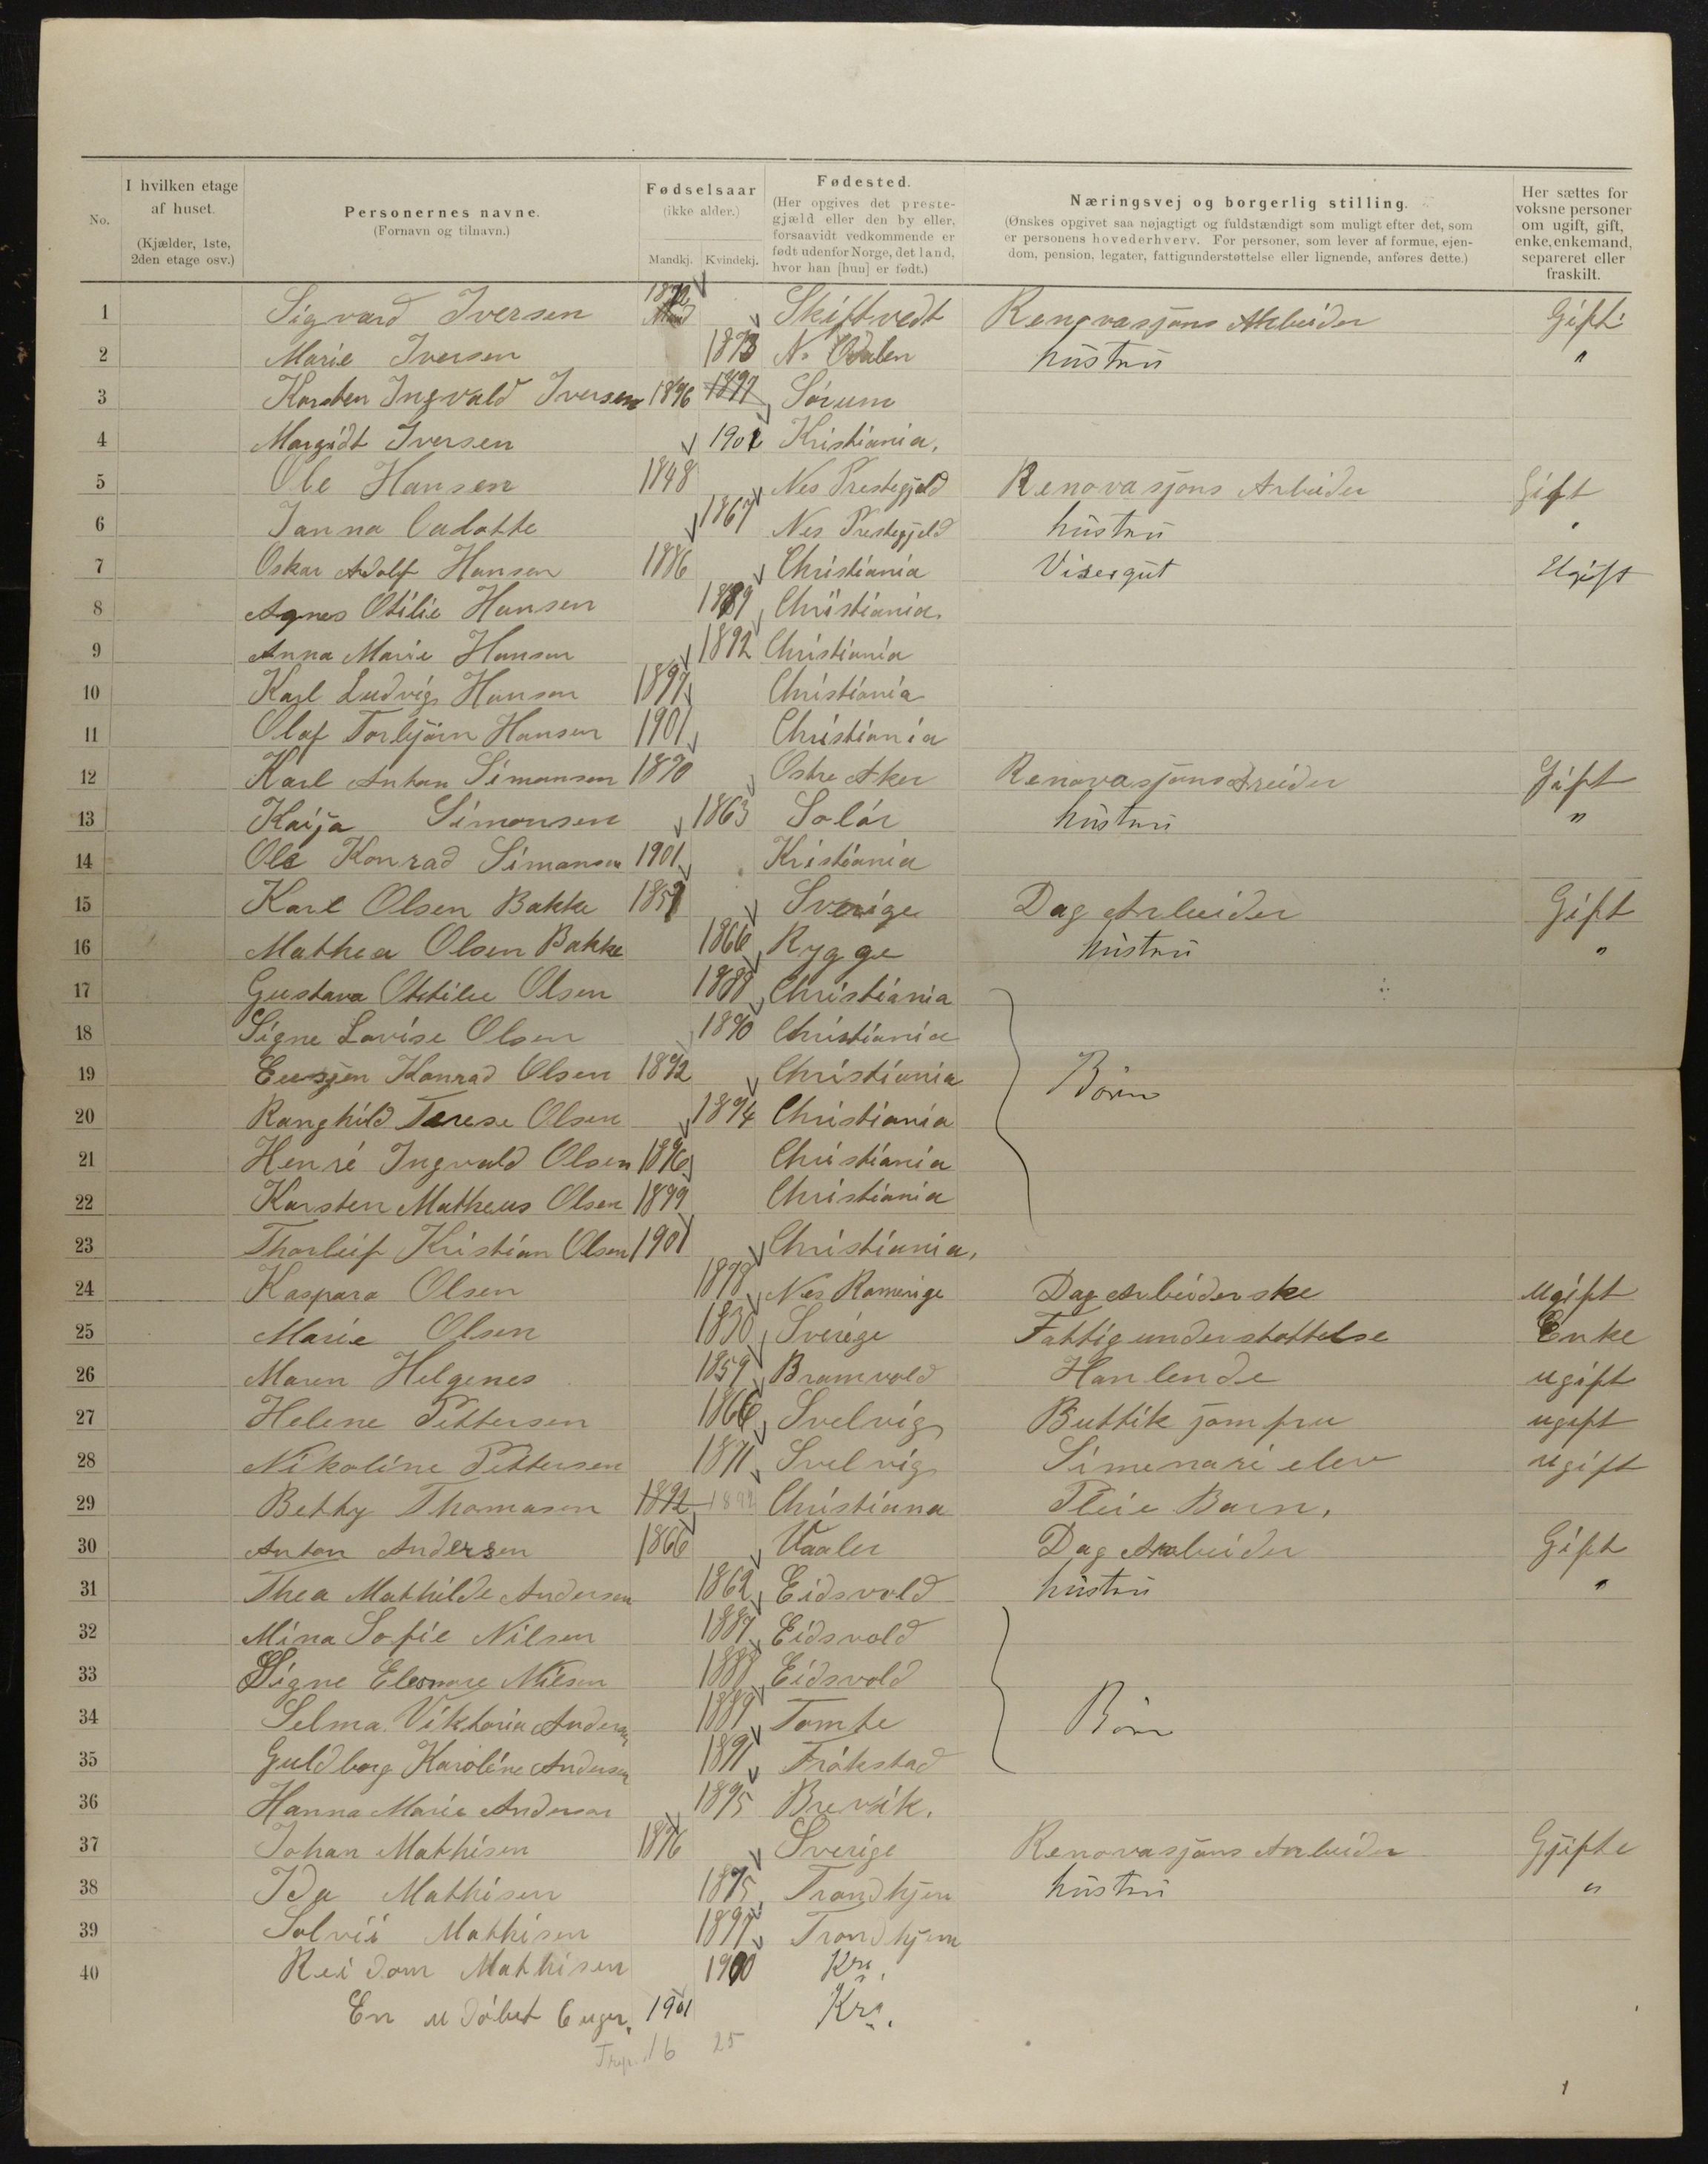 No.
I hvilken etage af huset. (Kjælder, 1ste, 2den etage osv.)
Personernes navne. (Fornavn og tilnavn.)
Fødselsaar (ikke alder.) Mandkj. Kvindekj.
Fødested. (Her opgives det prestegjæld eller den by eller, forsaavidt vedkommende er født udenfor Norge, det land, hvor han [hun] er født.)
Næringsvej og borgerlig stilling. (Ønskes opgivet saa nøjagtigt og fuldstændigt som muligt efter det, som er personens hovederhverv. For personer, som lever af formue, ejendom, pension, legater, fattigunderstøttelse eller lignende, anføres dette.)
Her sættes for voksne personer om ugift, gift, enke, enkemand, separeret eller fraskilt.
1 Sigvard Iversen 1872 Skiftvedt Renovasjons Arbeider Gift
2 Marie Iversen 1873 N. Odalen hustru "
3 Karsten Ingvald Iversen 1896 1897 Sørum
4 Margidt Iversen 1901 Kristiania.
5 Ole Hansen 1848 Nes Prestegjeld Renovasjons Arbeider Gift
6 Janna Calotte 1867 Nes Prestegjeld hustru "
7 Oskar Adolf Hansen 1886 Christiania Visergut Ugift
8 Agnes Otilie Hansen 1889 Christiania.
9 Anna Marie Hansen 1892 Christiania
10 Karl Ludvig Hansen 1897 Christiania
11 Olaf Torbjørn Hansen 1901 Christiania
12 Karl Anton Simonsen 1870 Ostre Aker Renovasjons Areider Gift
13 Kaija Simonsen 1863 Solør hustru "
14 Ole Konrad Simonsen 1901 Kristiania
15 Karl Olsen Bakke 1857 Sverige Dag Arbeider Gift
16 Mathea Olsen Bakke 1866 Rygge hustru "
17 Gustava Ottilie Olsen 1888 Christiania
18 Signe Lovise Olsen 1890 Christiania
19 Eusjen Konrad Olsen 1892 Christiania Børn
20 Ranghild Terese Olsen 1894 Christiania
21 Henri Ingvald Olsen 1896 Christiania
22 Karsten Matheus Olsen 1899 Christiania
23 Thorleif Kristian Olsen 1901 Christiania.
24 Kaspara Olsen 1878 Nes Romerige Dag Arbeiderske Ugift
25 Marie Olsen 1830 Sverige Fattigunderstøttelse Enke
26 Maren Helgenes 1859 Bramvold Hanlende ugift
27 Helene Pettersen 1866 Svelvig Buttik jomfru ugift
28 Nikoline Pettersen 1871 Svelvig Simenari elev ugift
29 Betty Thomasen 1892 1892 Christiana Pleie Barn.
30 Anton Andersen 1866 Vaaler Dag Arabeider Gift
31 Thea Mathilde Andersen 1862 Eidsvold hustru "
32 Mina Sofie Nilsen 1887 Eidsvold
33 Signe Eleonore Nilsen 1888 Eidsvold
34 Selma Viktoria Andersen 1889 Tomte Børn
35 Guldborg Karoline Andersen 1891 Frøkstad
36 Hanna Marie Andersen 1895 Brevik.
37 Johan Mathisen 1876 Sverige Renovasjons Arbeider Gjifte
38 Ida Mathisen 1875 Trondhjem hustru "
39 Solvii Mathisen 1897 Trondhjem
40 Reidom Mathisen 1900 Kra.
En udøbet 6 uger. 1901 Kra.
16 25